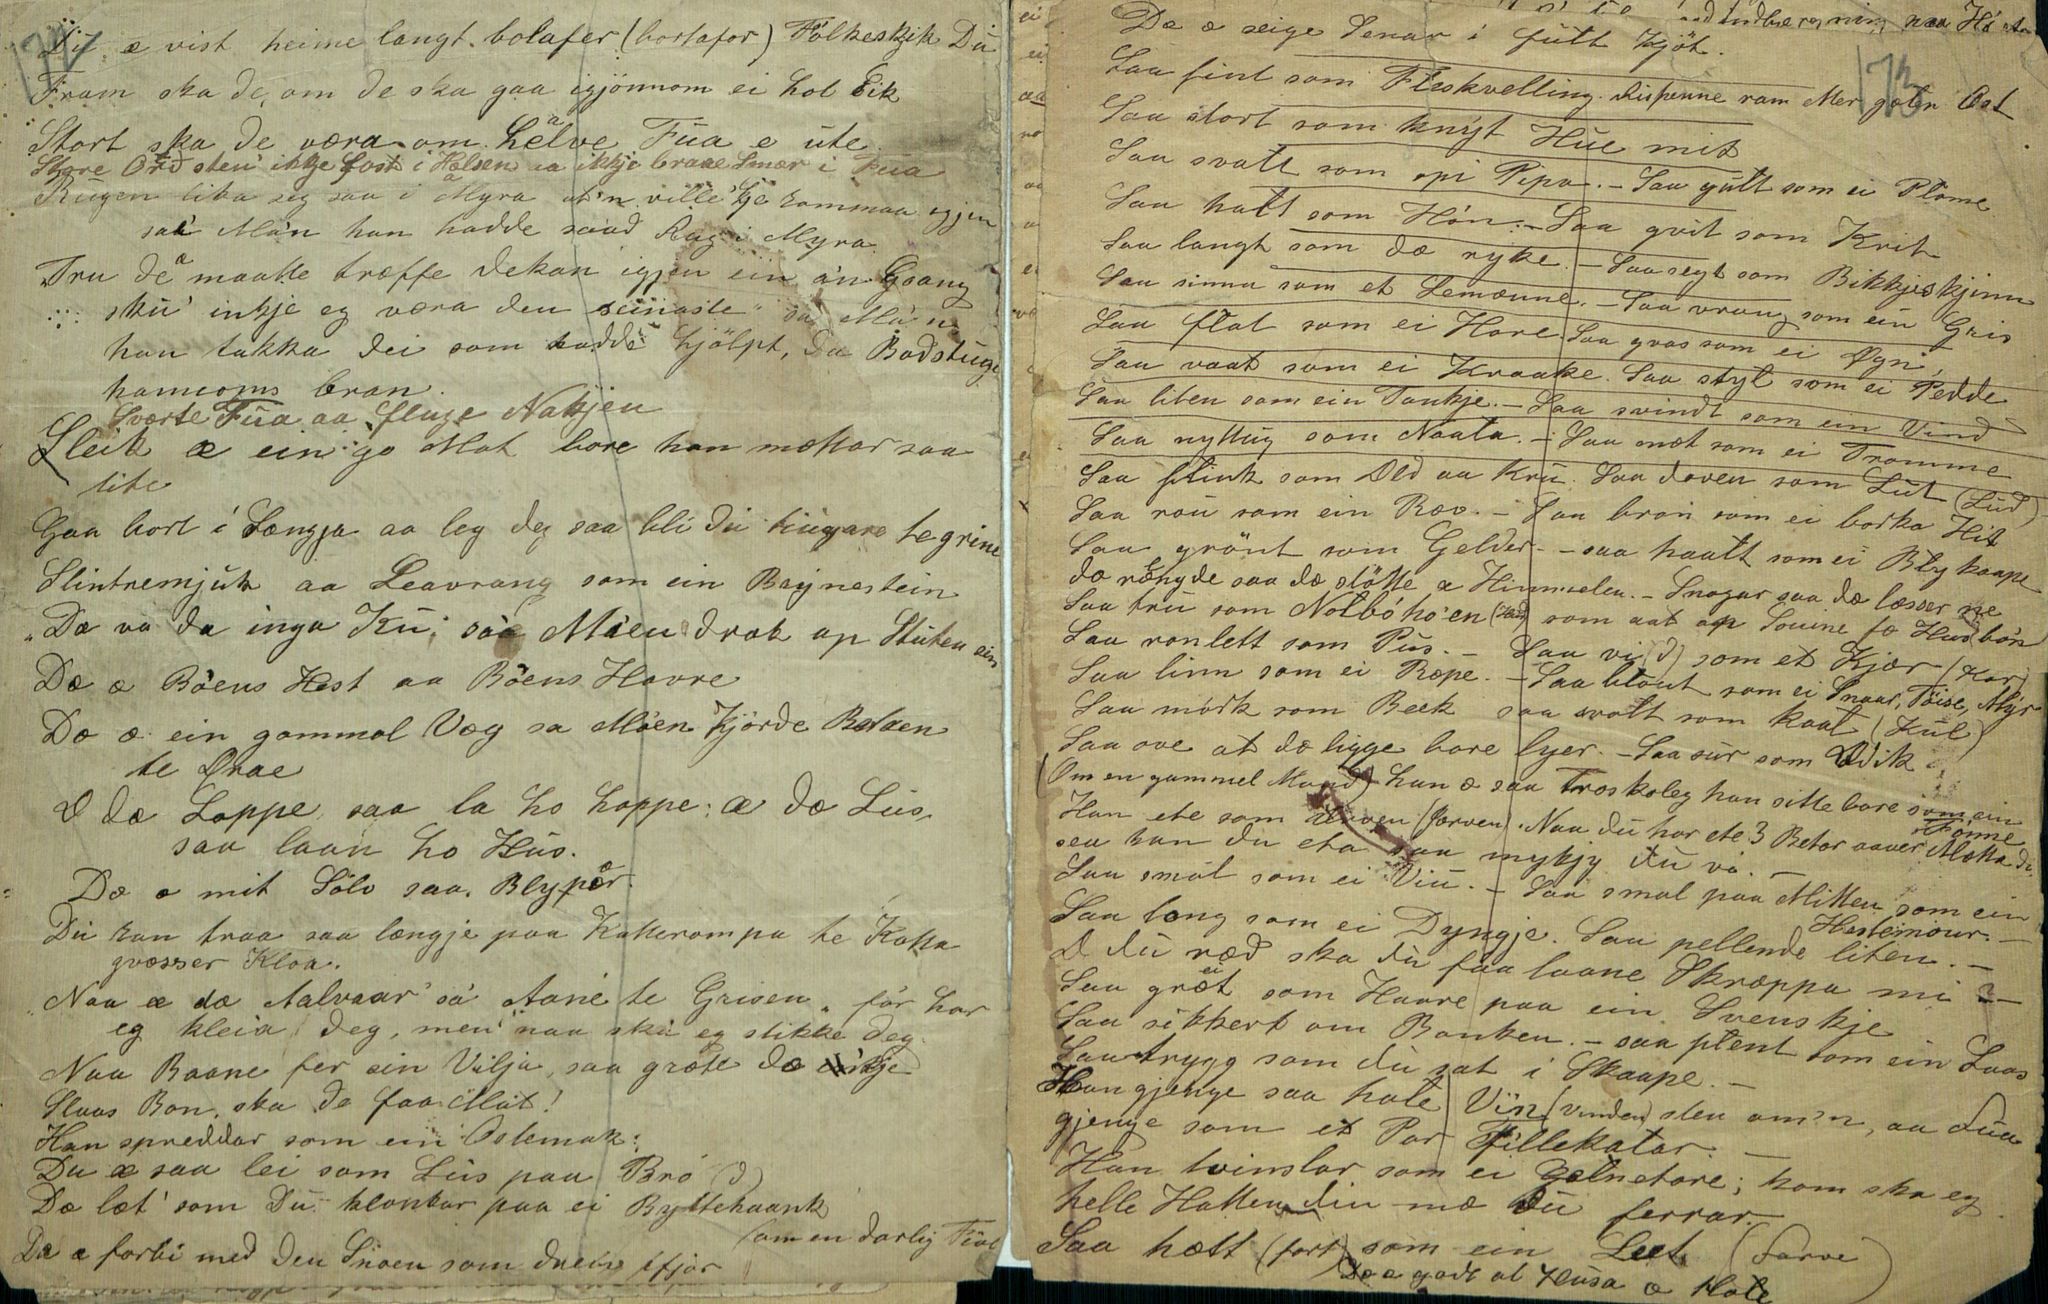 172
Du æ vist heime langt bolafer (bortafor) Fölkeskjik Du
Fram ska de, om de ska gaa igjönnom ei hol Eik
Stort ska de væra om halve Fua e ute.
Store Ord sleu ikkje fost i Halsen aa ikkje braae Smær i Fua
Rugen lika seg saa i Myra at'n ville 'kje kommaa igjen
saa Ma'n han hadde saad Rug i Myra
"Tru de maatte træffe dekan igjen ein a'n Gaang
sku' inkje eg væra den seinaste" sa Ma'n
han takka dei som hadde hjölpt, da Badstuge
hans bran.
Sværte Fua aa fluge Nakjen
Sleik æ ein go Mat bare han mættar saa
lite
Gaa bort i Længja aa leg deg saa bli du hugare te grine
Slintremjuk aa Leavrang som ein Brynestein
"Dæ va da inga Ku", saa Ma'en drak op Stuten sin
Dæ æ Böens Hest aa Böens Havre
Dæ æ ein gammal Væg sa Ma'en kjörde
te Drae
Æ dæ Loppe, saa la ho hoppe; æ dæ Lus,
saa laan ho Hus.
Dæ æ mit Sölv saa. Blypær.
Du kan traa saa længje paa Katterompa te Katta
gvæsser Kloa.
"Naa æ dæ Aalvaar" sa' Aane te Grisen, "för har
eg kleia deg, men naa ska eg stikke deg.
Naa Baane fer sin Vilja, saa græte dæ inkje
Slaas Ban, ska de faa Mat!
Han spreddar som ein Ostemak.
Du æ saa lei som Lus paa Bró(d)
Dæ læt' som Du klonkar paa ei Byttehaank
(om en darlig Fiol
Dæ æ forbi med den Snoen som dreiv ifjor

173
Dæ æ seige Senar i fult Kjöt.
Saa fint som Fluskvelling. Mer gæten Ost
Saa stort som knyt Hue mit
Saa svatt som opi Pipa. - Saa gult som ei Plome
Saa hatt som Hón. - Saa gvit som Krit
Saa langt som dæ ryke. - Saa seigt som Bikkjeskjinn
Saa sinna som et Lemænne. - Saa vrang som ein Gris
Saa flat som ei Hare. Saa gvas som ei Øgn
Saa vaat som ei Kraake. Saa styl som ei Pedde
Saa liten som ein Tankje. - Saa svindt som ein Vind
Saa nyttug som Naata. - Saa mæt som ei Tromme
Saa flink som Eld aa Kru. Saa doven som Lut (Lud)
Saa rou som ein Ræv. - Saa bran som ei borka Hit
Saa grönt som Gelder. - saa haalt som ei Blykaape
dæ rængde saa dæ slötte a Himmelen. - Snogar saa dæ læsser ne
Saa tru som Notbó'hó'en som aat op Souine fo Husbón
Saa ronlett som Pus. - Saa vi(d) som et Kjær (Kar)
Saa linn som ei Ræpe. - Saa blout som ei Snaar, Töise, Myr
Saa mórk som Beek saa svatt som kaal (Kul)
Saa ove at dæ ligge bare lyer. - Saa sur som Edik
(Om en gammel Mand) han æ saa troskoleg han sitte bare som ein
Fönne
Han ete som Erven (Jærven). Naa du har ete 3 Betar aaver Mætta di,
sea kan du eta saa mykjy du vi. -
Saa smal som ei Viu. - Saa smal paa Mitten som ein
Hestemour. -
Saa lang som ei Dyngje. Saa pellende liten. -
Æ du ræd ska du faa laane Skræppa mi? -
Saa gret som Haare paa ein Svenskje
Saa sikkert om Banken. - saa plent som ein Laas
Saa trygg som du sat i Skaape. -
Han gjenge saa hale Vin (vinden) sten om'n, aa Lua
gjenge som et Par Fillekatar. -
Han tvinslar som ei Gætnetare; kom ska eg
helle Hatten din mæ du ferrar. -
Saa hætt (fort) som ein Leet (Farve)
Dæ æ godt at Husa æ Hole